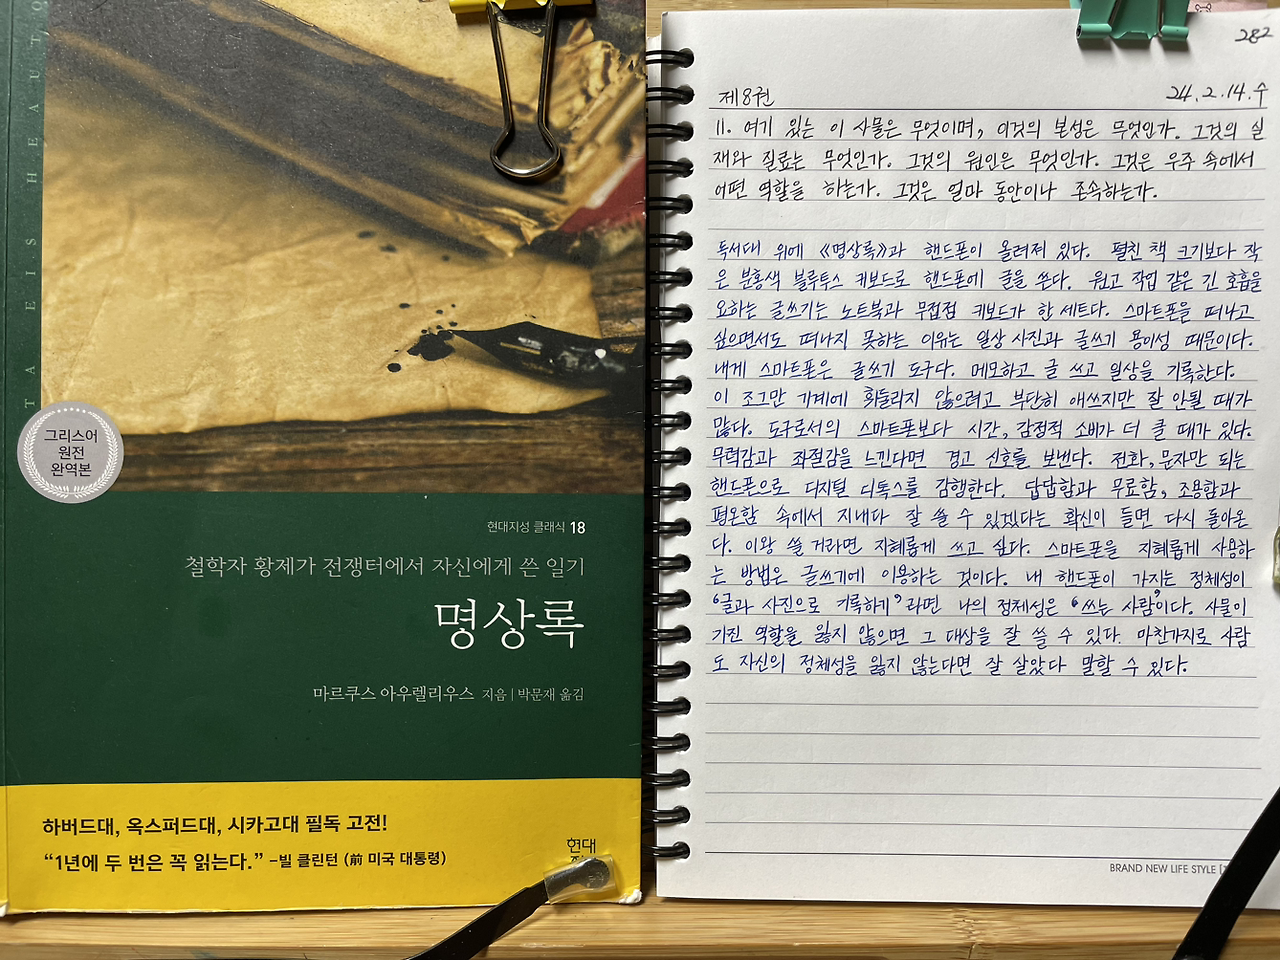 T A E I S H E A U T O
그리스어
원전
완역본
현대지성 클래식 18
철학자 황제가 전쟁터에서 자신에게 쓴 일기
명상록
마르쿠스 아우렐리우스 지음 | 박문재 옮김
하버드대, 옥스퍼드대, 시카고대 필독 고전!
“1년에 두 번은 꼭 읽는다.” –빌 클린턴 (前 미국 대통령)
현대
282
제8권 24.2.14.수
11. 여기 있는 이 사물은 무엇이며, 이것의 본성은 무엇인가. 그것의 실
재와 질료는 무엇인가. 그것의 원인은 무엇인가. 그것은 우주 속에서
어떤 역할을 하는가. 그것은 얼마 동안이나 존속하는가.
독서대 위에 《명상록》과 핸드폰이 올려져 있다. 펼친 책 크기보다 작
은 분홍색 블루투스 키보드로 핸드폰에 글을 쓴다. 원고 작업 같은 긴 호흡을
요하는 글쓰기는 노트북과 무접점 키보드가 한 세트다. 스마트폰을 떠나고
싶으면서도 떠나지 못하는 이유는 일상 사진과 글쓰기 용이성 때문이다.
내게 스마트폰은 글쓰기 도구다. 메모하고 글 쓰고 일상을 기록한다.
이 조그만 기계에 휘둘리지 않으려고 부단히 애쓰지만 잘 안될 때가
많다. 도구로서의 스마트폰보다 시간, 감정적 소비가 더 클 때가 있다.
무력감과 좌절감을 느낀다면 경고 신호를 보낸다. 전화, 문자만 되는
핸드폰으로 디지털 디톡스를 감행한다. 답답함과 무료함, 조용함과
평온함 속에서 지내다 잘 쓸 수 있겠다는 확신이 들면 다시 돌아온
다. 이왕 쓸 거라면 지혜롭게 쓰고 싶다. 스마트폰을 지혜롭게 사용하
는 방법은 글쓰기에 이용하는 것이다. 내 핸드폰이 가지는 정체성이
‘글과 사진으로 기록하기’라면 나의 정체성은 ‘쓰는 사람’이다. 사물이
가진 역할을 잃지 않으면 그 대상을 잘 쓸 수 있다. 마찬가지로 사람
도 자신의 정체성을 잃지 않는다면 잘 살았다 말할 수 있다.
BRAND NEW LIFE STYLE